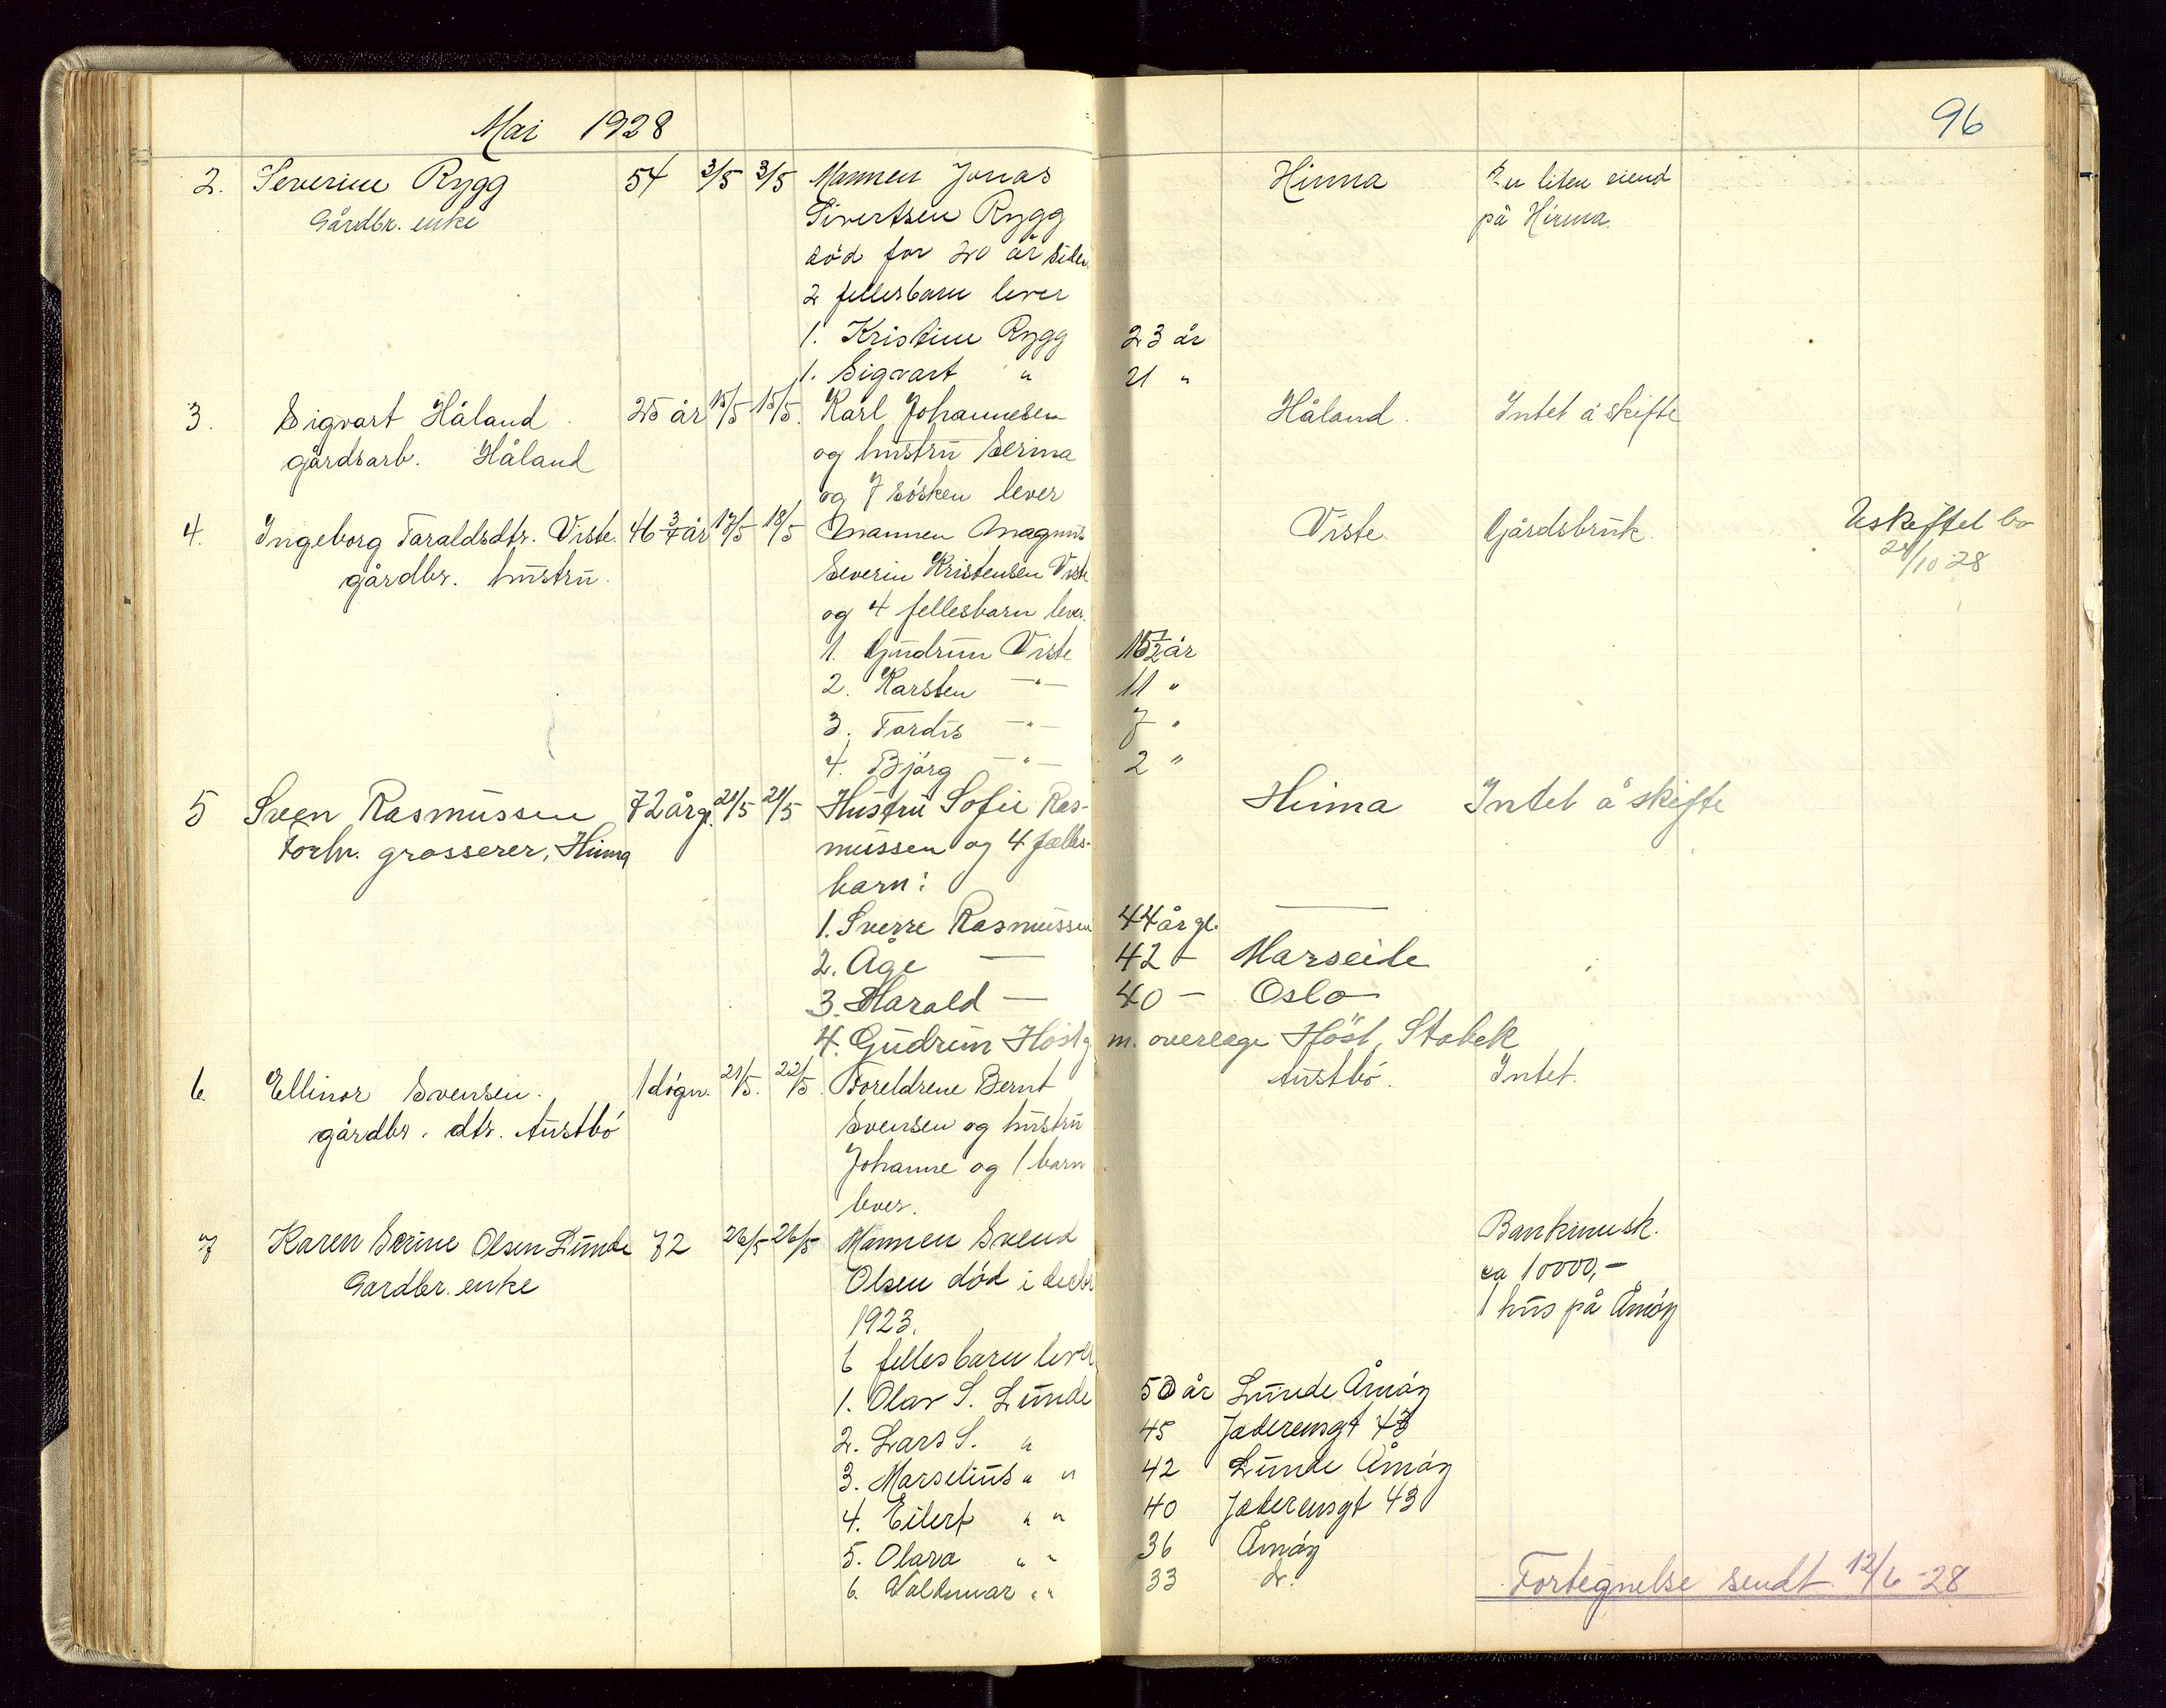 Mai 1928
96
2. Severine Rygg 54 3/5 3/5 Mannen Jonas Hinna En liten eiend
Gårdbr. enke Sivertsen Rygg på Hinna.
död for 20 år siden
2 fellesbarn lever
1. Kristine Rygg 23 år
1. Sigvart " 21 "
3. Sigvart Håland 25 år 15/5 15/5. Karl Johannesen Håland. Intet å skifte
gårdsarb. Håland og hustru Serina
og 7 sösken lever
4. Ingeborg Taraldsdtr. Viste 46 3/4 år 17/5 18/5 Mannen Magnus Viste. Gårdsbruk. Uskiftet bo
gårdbr. hustru. Severin Kristensen Viste 24/10-28
og 4 fellesbarn lever.
1. Gudrun Viste 15 1/2 år
2. Karsten -"- 11 "
3. Tordis -"- 7 "
4. Björg -"- 2 "
5 Sven Rasmussen 72 årgl. 21/5 21/5 Hustru Sofie Ras- Hinna Intet å skifte
Forhv. grosserer, Hinna mussen og 4 fælles-
barn:
1. Sverre Rasmussen 44 år gl. —
2. Åge — 42 - Marseile
3. Harald — 40 - Oslo
4. Gudrun Höst g. m. overlege Höst, Stabek
6 Ellinor Svensen. 1 dögn. 21/5. 22/5. Foreldrene Bernt Austbö. Intet.
gårdbr. dtr. Austbö Svensen og hustru
Johanne og 1 barn
lever.
7 Karen Serine Olsen Lunde 72 26/5 26/5 Mannen Svend Bankinnsk.
Gardbr. enke Olsen död i decbr ca 10000,-
1923. 1 hus på Åmöy
6 fellesbarn lever
1. Olav S. Lunde 50 år Lunde Åmöy
2. Lars S. " 45 Jæderensgt 43
3. Marselius " " 42 Lunde Åmöy
4. Eilert " " 40 Jæderensgt 43
5. Olava " " 36 Åmöy
6. Valdemar " " 33 do.
Fortegnelse sendt 12/6-28